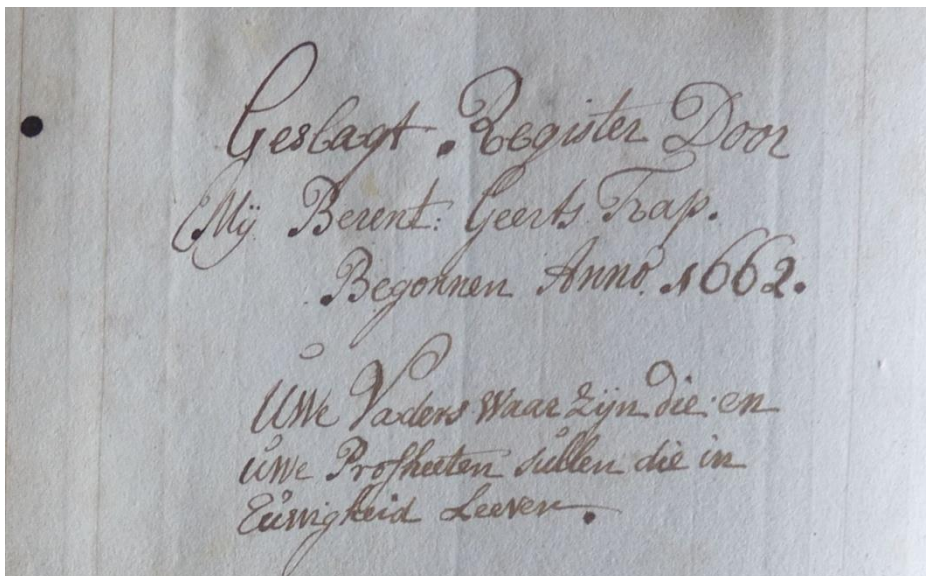 Geslagt. Register Door
Mij Berent: Geerts Trap.
Begonnen Anno. 1662.
Uwe Vaders Waar Zijn die en
uwe Profheeten sullen die in
Euwigheid Leeven.